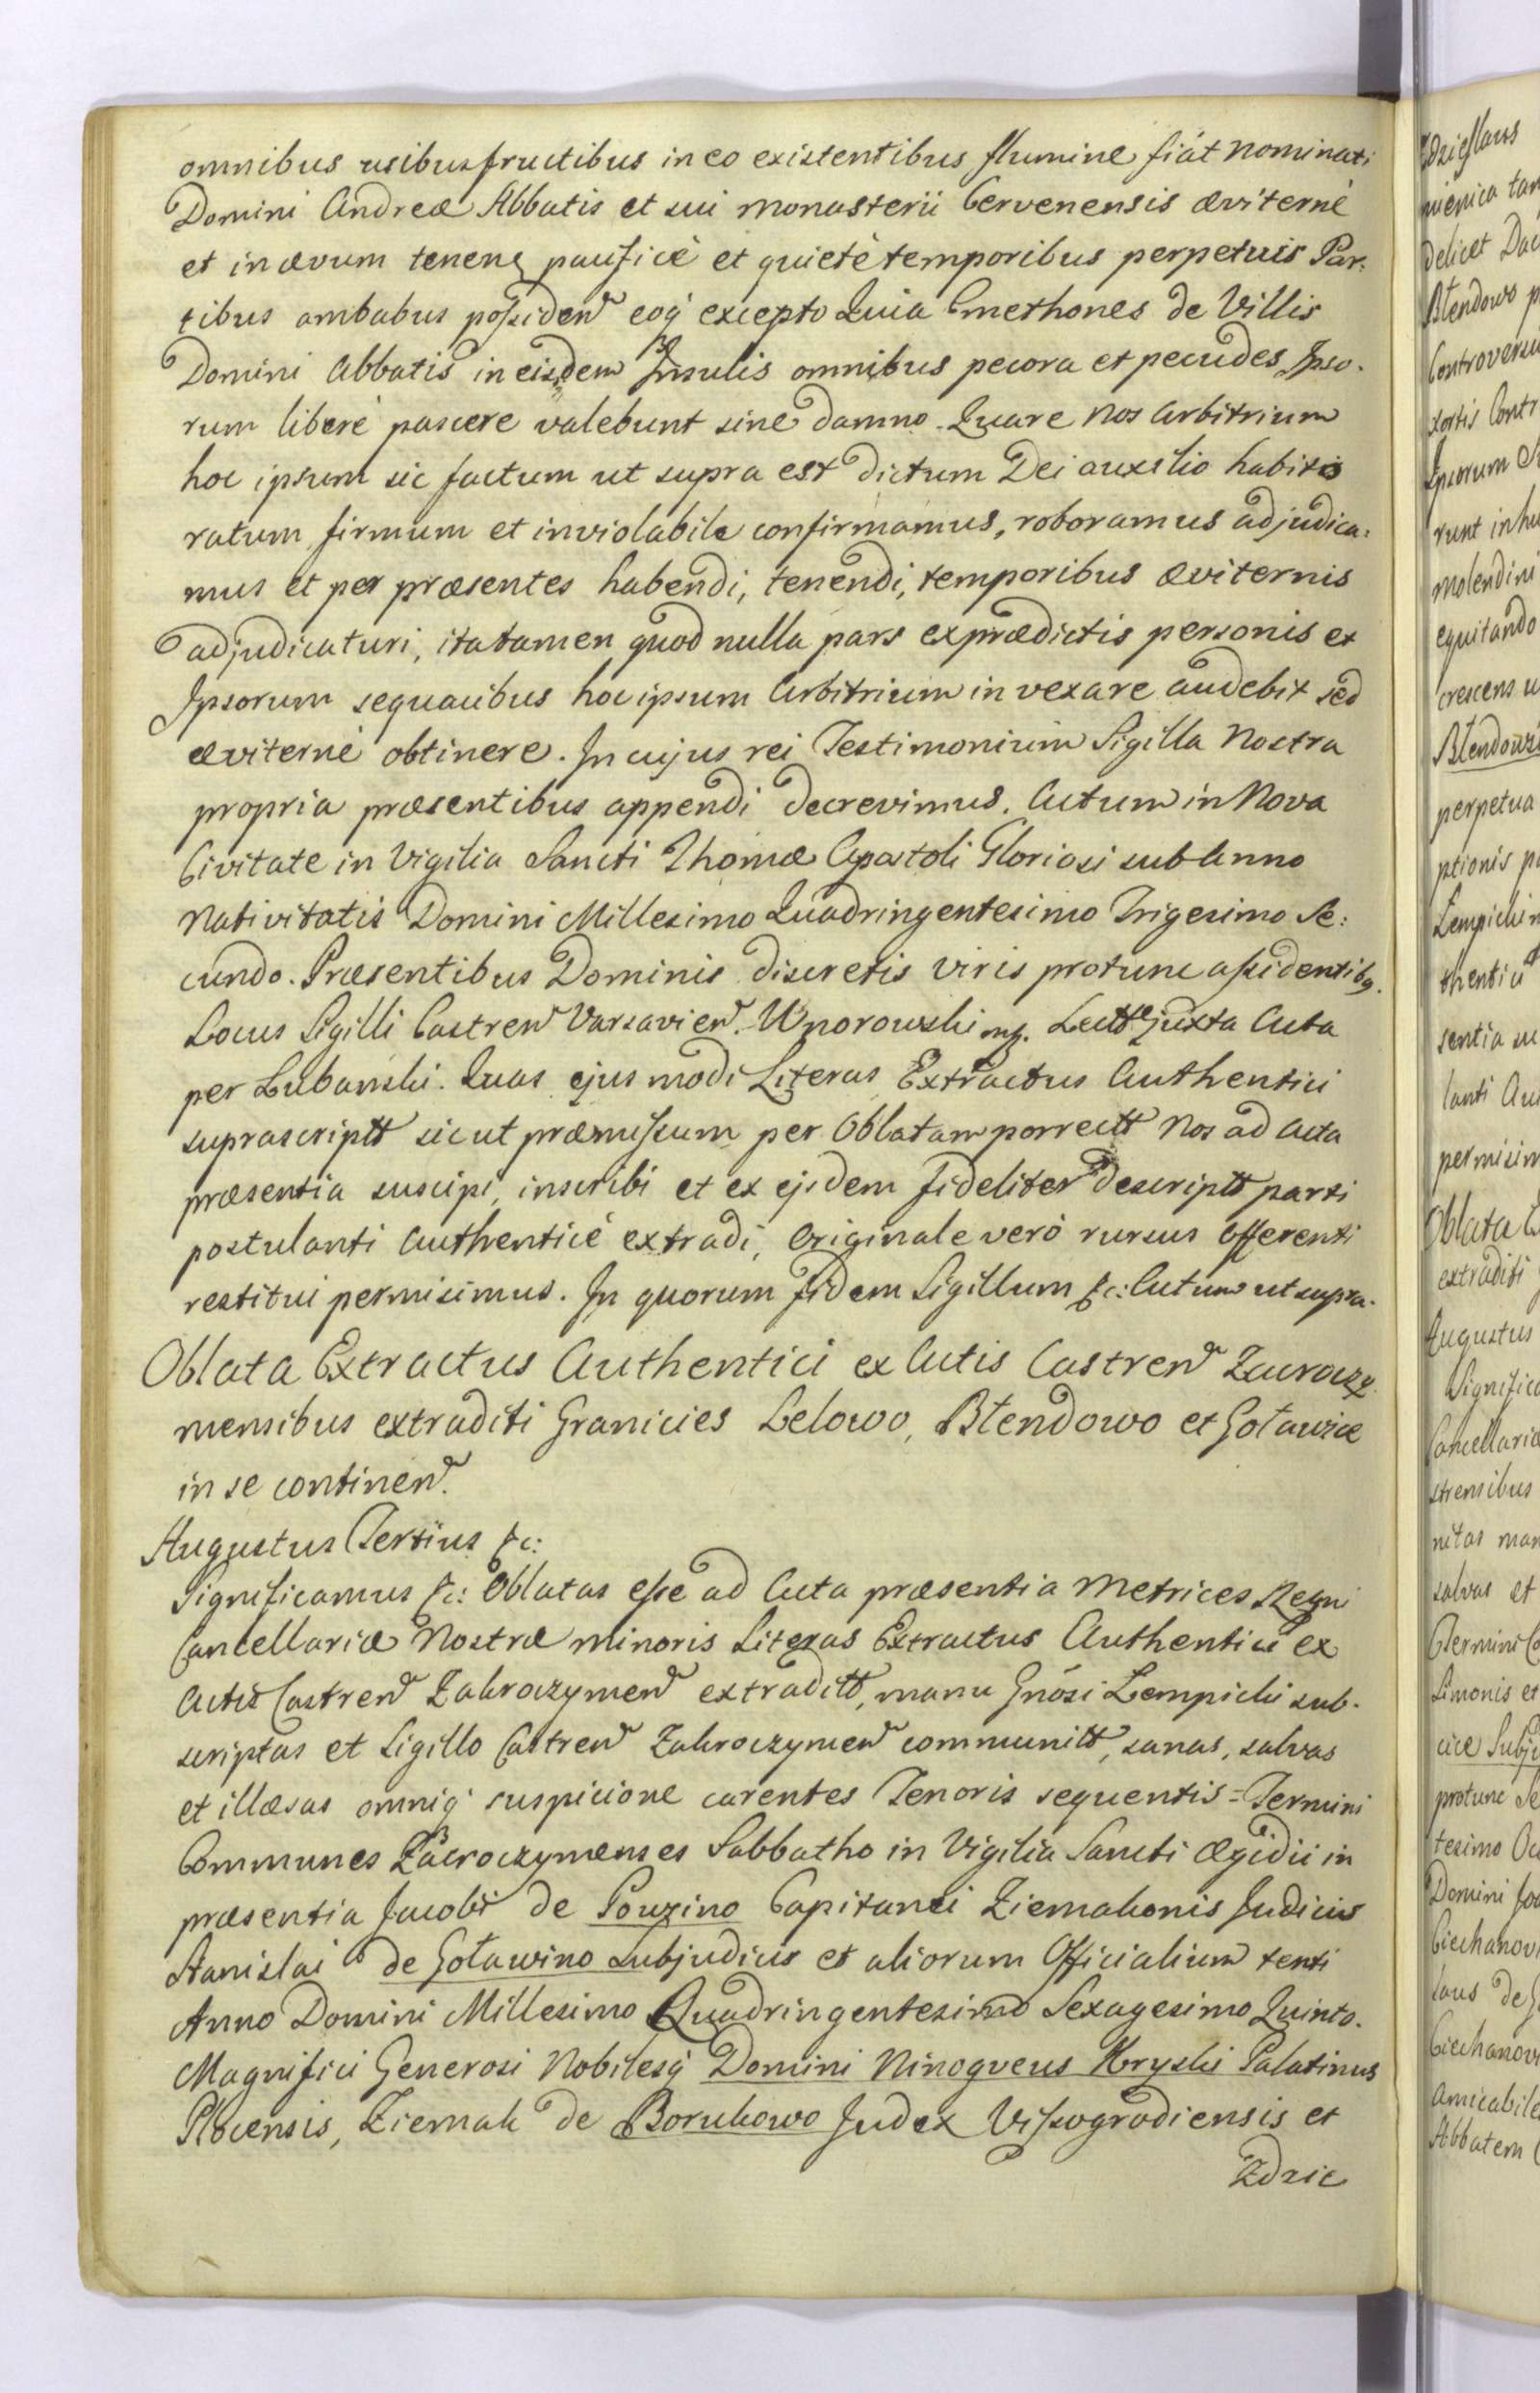 omnibus usibusfructibus in eo existentibus flumine fiat nominati
Domini Andreæ Abbatis et sui monasterii Cervenensis æviternè
et inævum tenenꝫ pacificè et quietè temporibus perpetuis Par:
tibus ambabus possiden eoq excepto Quia Cmethones de Villis
Domini Abbatis in eisdem Insulis omnibus pecora et pecudes Ipso.
rum liberè pascere valebunt sine damno. Quare nos Arbitrium
hoc ipsum sic factum ut supra est dictum Dei auxilio habito
ratum firmum et inviolabile confirmamus, roboramus adjudica:
mus et per præsentes habendi, tenendi, temporibus æviternis
adjudicaturi, itatamen quod nulla pars exprædictis personis et
Ipsorum sequacibus hoc ipsum Arbitrium in vexare audebit sed
æviternè obtinere. In cujus rei Testimonium Sigilla Nostra
propria præsentibus appendi decrevimus. Actum in Nova
Civitate in Vigilia Sancti Thomæ Apostoli Gloriosi sub Anno
Nativitatis Domini Millesimo Quadringentesimo Trigesimo Se:
cundo. Præsentibus Dominis discretis viris protunc assidentibꝫ.
Locus Sigilli Castren Varsavien. Unorowski mp. Lectt juxta Acta
per Lubanski. Quas ejusmodi Literas Extractus Authentici
suprascriptt sicut præmissum per Oblatam porrectt Nos ad Acta
præsentia suscipi, inscribi et ex ejsdem fideliter descriptt parti
postulanti Authenticè extradi, Originale verò rursus Offerenti
restitui permisimus. In quorum fidem Sigillum &c: Actum ut supra.
Oblata Extractus Authentici ex Actis Castren Zacroczy
mensibus extraditi Granicies Lelowo, Błendowo et Goławice
in se continen.
Augustus Tertius &c:
Significamus &c: Oblatas esse ad Acta præsentia Metrices Regni
Cancellariæ Nostræ minoris Literas Extractus Authentici ex
Actis Castren Zakroczymen extraditt, manu Gnosi Lempicki sub.
scriptas et Sigillo Castren Zakroczymen communitt, sanas, salvas
et illæsas omniq suspicione carentes Tenoris sequentis = Termini
Communes Zacroczymenses Sabbatho in Vigilia Sancti Ægidii in
præsentia Jacobi de Gouzino Capitanei Ziemakonis Judicis
Stanislai de Goławino Subjudicis et aliorum Officialium tenti
Anno Domini Millesimo Quadringentesimo Sexagesimo Quinto.
Magnifici Generosi Nobilesq Domini Ninogneus Kryski Palatinus
Plocensis, Ziemak de Borukowo Judex Vissogradiensis et
Zdzie